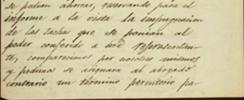 se pedian ahorar, reservando para el
informe a la vista la impugnacion
de las tachas que se ponian al
poder conferido a mi representan-
te, comparecemos por nosotros mismos
y pedimos se asignara al abogado
contrario un término perentorio pa-